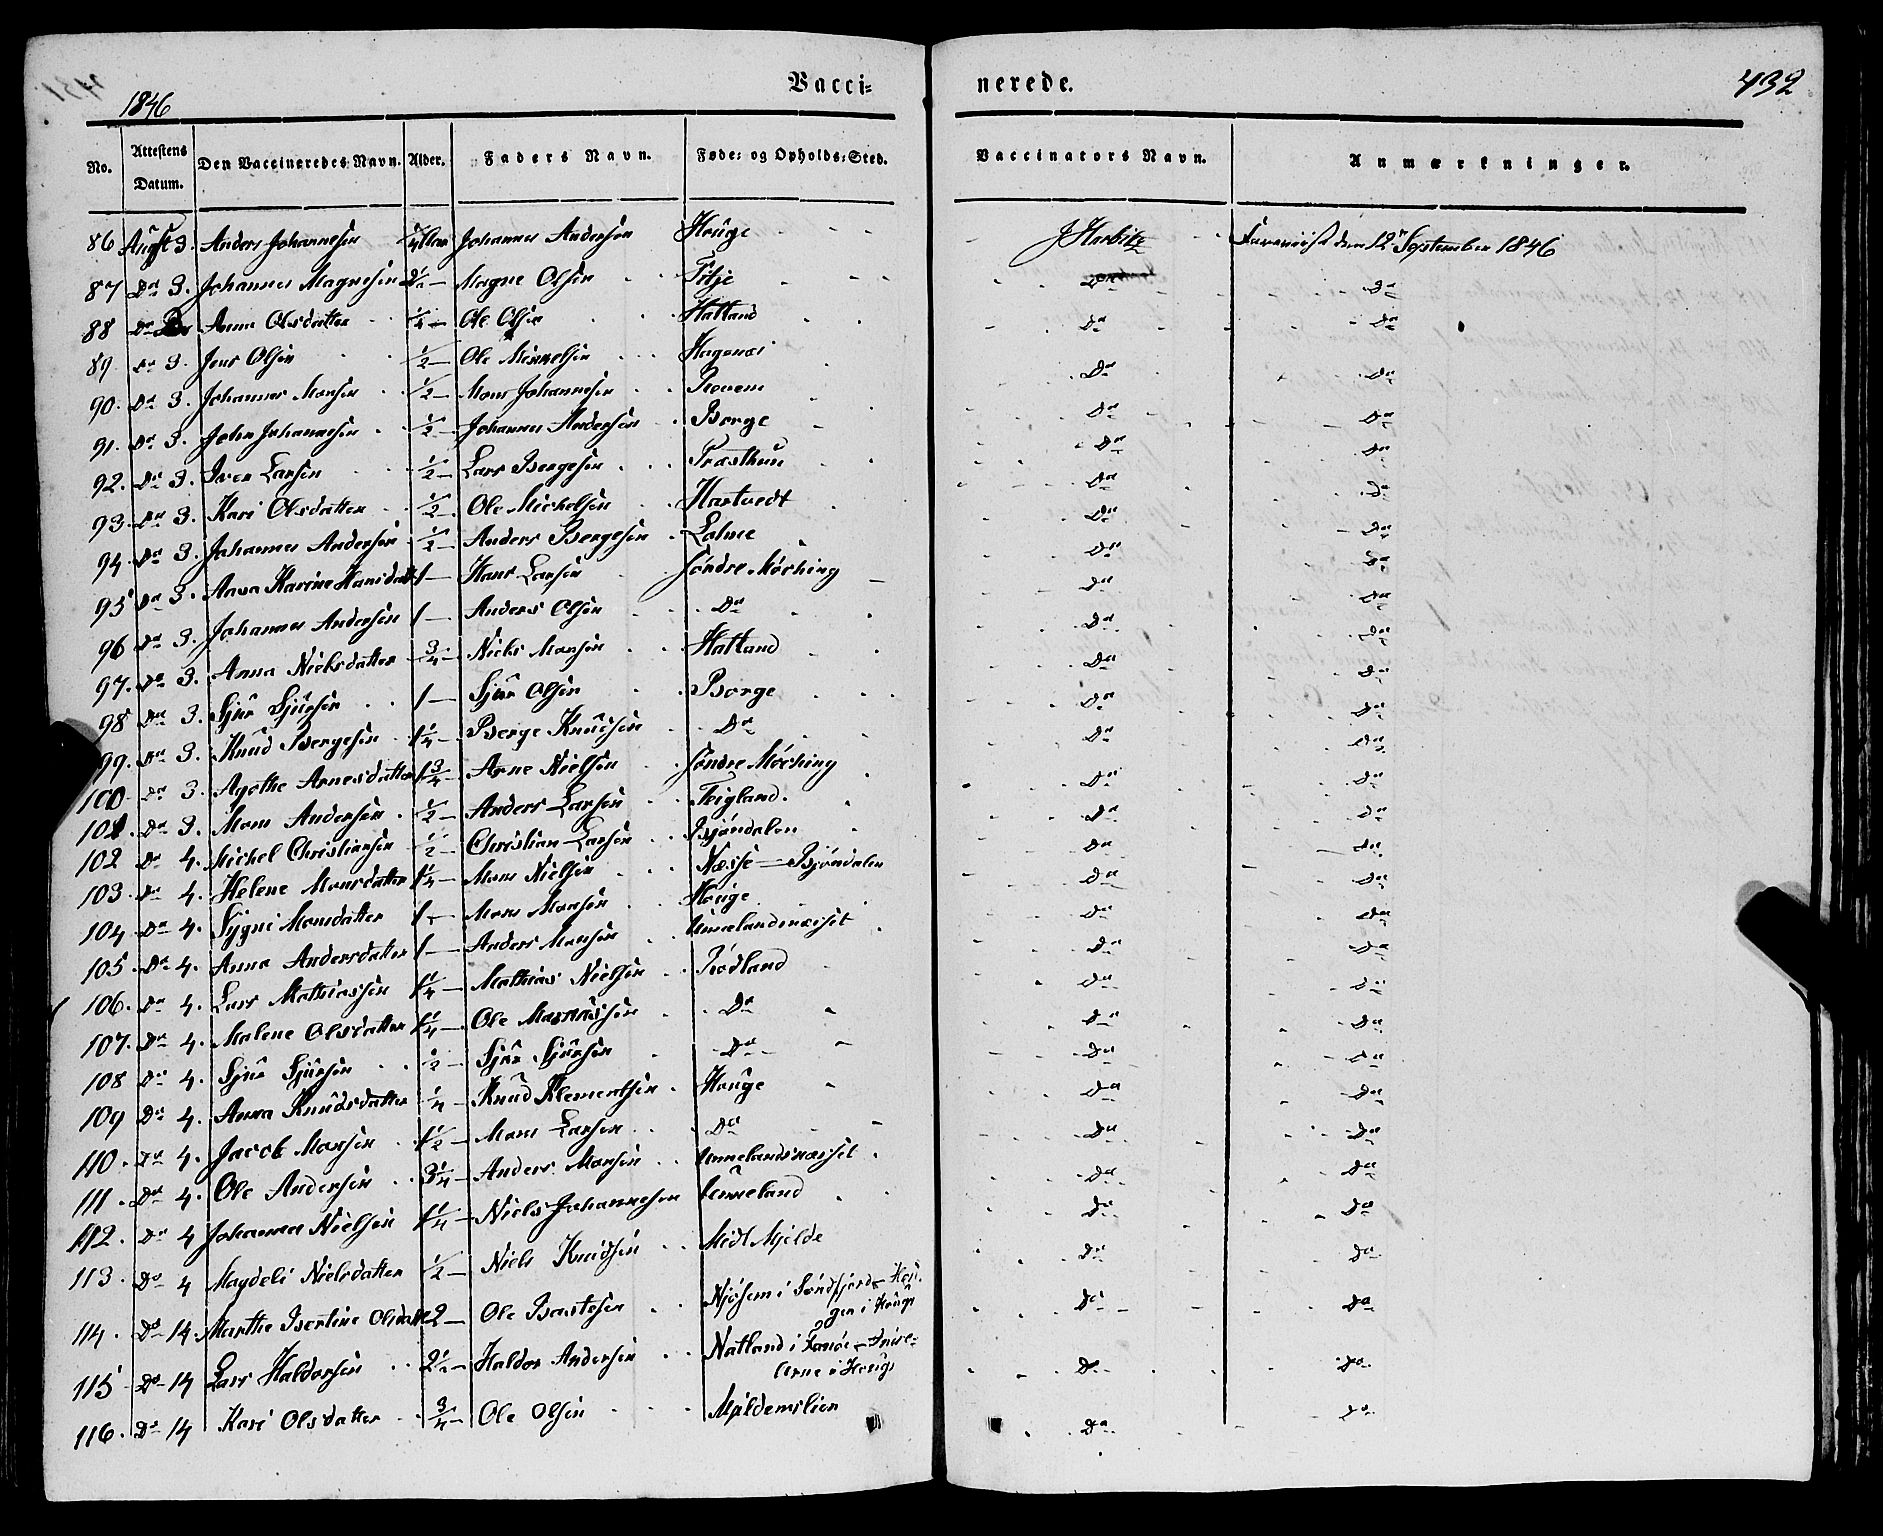 432
1846
Vacci= nerede.
No. Attestens Datum. Den Vaccineredes Navn. Alder. Faders Navn. Føde= og Opholds=Sted. Vaccinators Navn. Anmærkninger.
86 Augst 3. Anders Johannesen Johannes Andersen Houge den 12 September 1846
87 Do 3. Johannes Magnesen Magne Olsen Titje Do Do
88 Do Anna Olsdatter Ole Olsen Hatland Do Do
89 Do 3. Jens Olsen 1/2 Ole Do Do
90. Do 3. Johannes Monsen 1/2 Mons Johannesen Do Do
91. Do 3. John Johannesen 1/2 Johannes Andersen Borge Do Do
92. Do 3. Iver Larsen 1/2 Lars Bergesen Præsthun Do Do
93. Do 3. Kari Olsdatter 1/2 Ole Michelsen Hartvedt Do Do
94. Do 3. Johannes Andersen 1/2 Anders Bergesen Lahme Do Do
95 Do 3. Anna Karine Hansdatt 1 Hans Larsen Søndre Mørching Do Do
96 Do 3. Johannes Andersen 1 Anders Olsen Do Do Do
97. Do 3. Anna Nielsdatter 3/4 Niels Monsen Hatland Do Do
98 Do 3. Sjur Sjursen 1 Sjur Olsen Borge Do Do
99. Do 3. Knud Bergesen 1 1/4 Berge Knudsen Do Do Do
100 Do 3. Agathe Arnesdatter 1 3/4 Arne Nielsen Søndre Mørching Do Do
101. Do 3. Mons Andersen 1/2 Anders Larsen Teigland. Do Do
102 Do 4. Michel Christiansen 1/2 Christian Larsen Bjøndalen Do Do
103. Do 4. Helene Monsdatter 1 1/4 Mons Nielsen Næsse - Bjøndalen Do Do
104 Do 4. Sygni Monsdatter 1 Mons Monsen Houge Do Do
105 Do 4. Anna Andersdatter 1 Anders Monsen Unnelandsnæsset Do Do
106. Do 4. Lars Mathiassen 1 1/4 Mathias Nielsen Rødland Do Do
107. Do 4. Malene Olsdatter 1 1/4 Ole Do Do Do
108 Do 4. Sjur Sjursen 1/2 Sjur Sjursen Do Do Do
109 Do 4. Anna Knudsdatter 1/4 Knud Klementsen Houge Do Do
110. Do 4. Jacob Monsen 1 1/2 Mons Larsen Do Do Do
111. Do 4. Ole Andersen 3 1/4 Anders Monsen Unnelandsnæsset Do Do
112. Do 4 Johannes Nielsen 1 1/4 Niels Johannesen Unneland Do Do
113. Do 4 Magdeli Nielsdatter 1/2 Niels Knudsen Midt Mjelde Do Do
114. Do 14. Marthe Bertine Olsdatt 2 Ole i Søndfjord i Houge Do Do
115 Do 14 Lars Haldorsen 2 1/2 Haldor Andersen Natland i Fanøe i Houge Do Do
116. Do 14 Kari Olsdatter 3/4 Ole Olsen Mjeldemslien Do Do